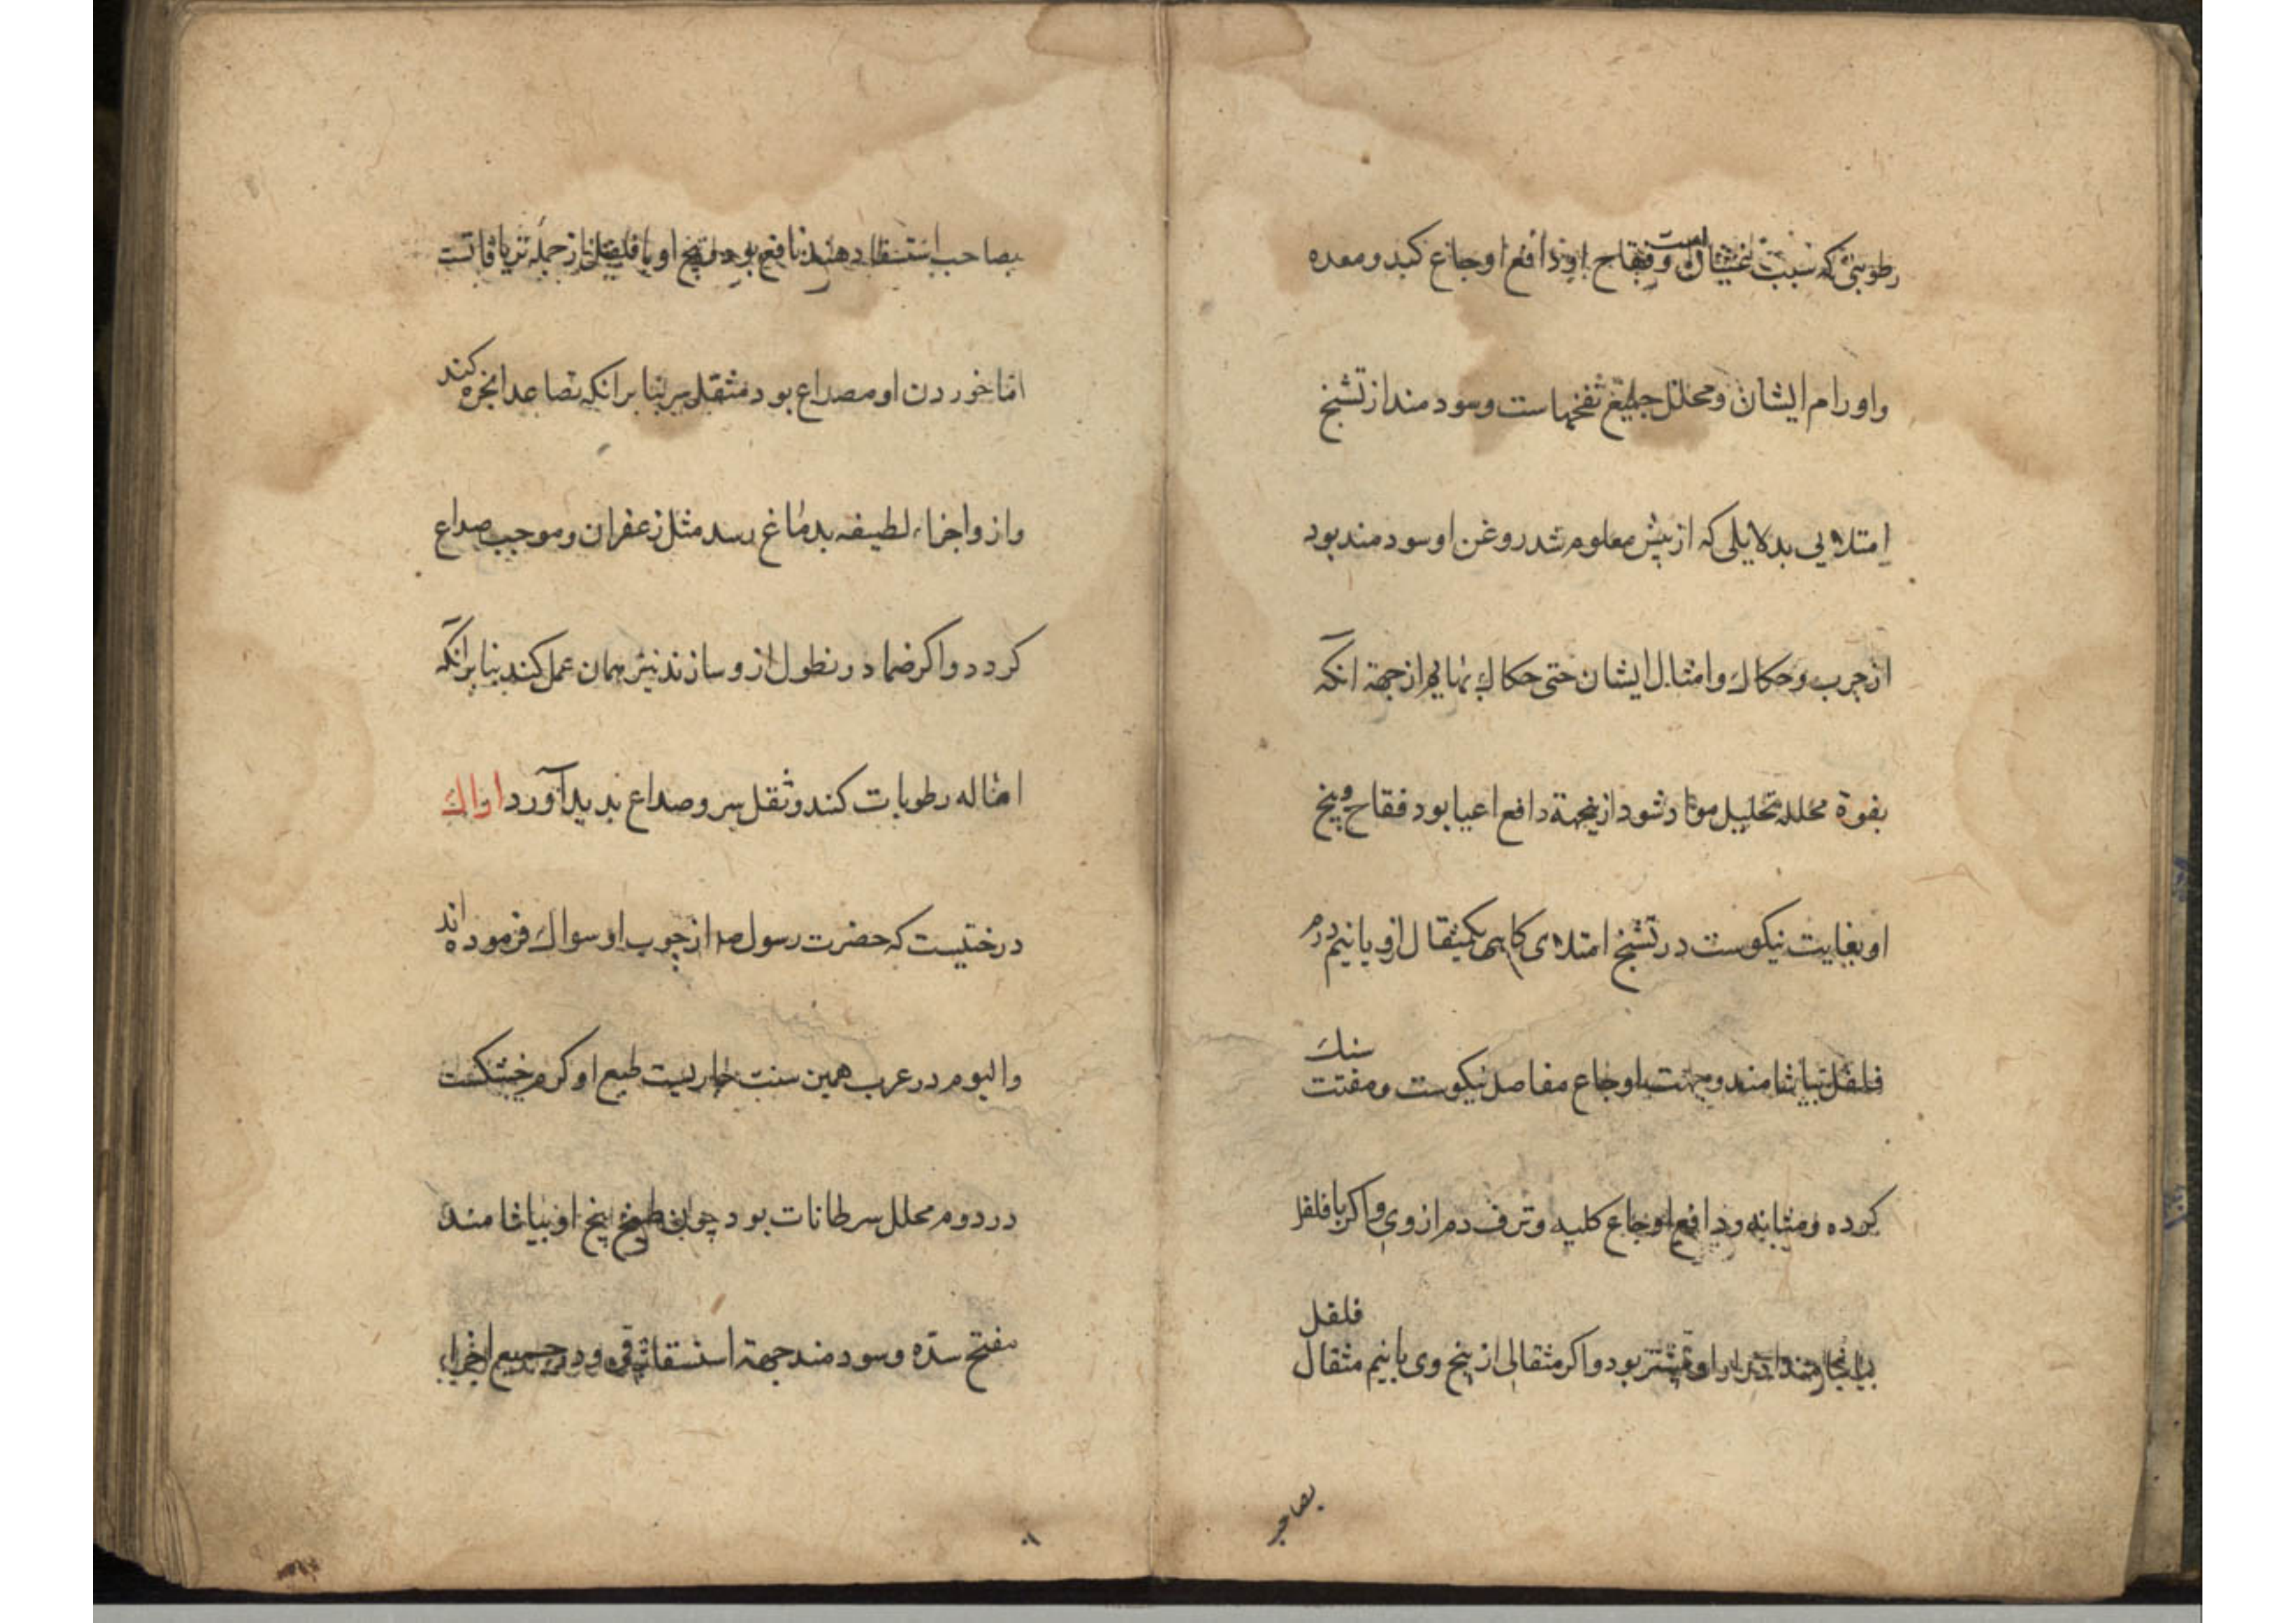 رطوبتی که سبب غثیان است و فقاح او دافع اوجاع کبد و معده
و اورام ایشان و محلل جمیع نفخهاست و سودمند از تشنج
امتلایی بدلایلی که از پیش معلوم شد روغن او سودمند بود
از جرب و حکاك و امثال ایشان حتی حکاك بهایم از جهة انکه
بقوة محلله تحلیل مواد شود ازینجهة دافع اعیا بود فقاح و بیخ
او بغایت نیکوست در تشنج امتلای کاهی یکمثقال ازو با نیم درم
فلفل بیاشامند و جهت اوجاع مفاصل نیکوست و مفتت سنك
کرده و مثانه و دافع اوجاع کلیه و نزف دم از وی و اکر با فلفل
ادرار او بیشتر بود و اکر مثقالی از بیخ وی با نیم مثقال فلفل
بصاحب
بصاحب استسقا دهند نافع بود و بیخ او با فلفل از جمله تریاقاتست
اما خوردن او مصداع بود مثقل سر بنا بر انکه تصاعد ابخره کند
و ازو اجزاء لطیفه بدماغ رسد مثل زعفران و موجب صداع
کردد و اکر ضماد و نطول ازو سازند نیز همان عمل کند بنا بر انکه
اماله رطوبات کند و ثقل سر و صداع پدید آورد اراك
درختیست که حضرت رسول صد از چوب او سواك فرموده اند
و الیوم در عرب همین سنت جاریست طبع او کرم خشکست
در دوم محلل سرطانات بود چون طبیخ بیخ او بیاشامند
مفتح سده و سودمند جهة استسقا و در جمیع اجزاء